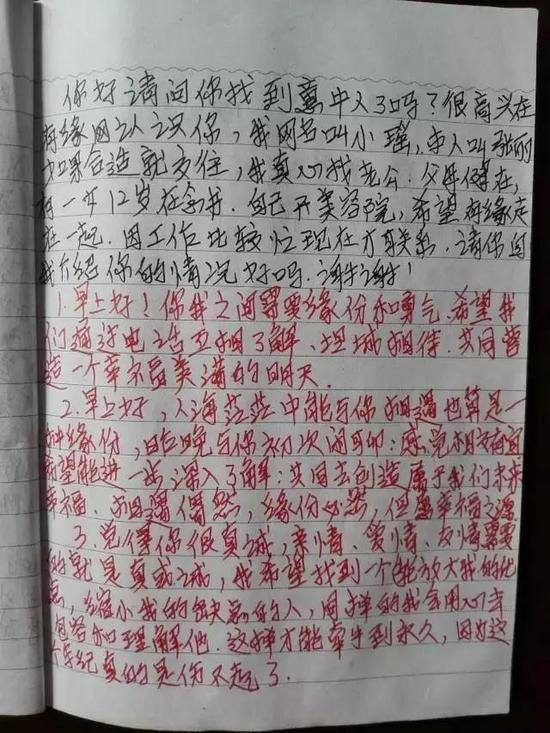 你好请问你找到意中人了吗？很高兴在
有缘网认识你，我网名叫小瑶，本人叫张丽
如果合适就交往，我真心找老公．父母健在，
有一女12岁在念书．自己开美容院，希望有缘走
在一起．因工作比较忙现在才有联系．请你向
我介绍你的情况好吗．谢谢！
1．早上好！你我之间需要缘份和勇气．希望我
们通过电话互相了解、坦城相待．共同营
造一个幸福美满的明天．
2．早上好，人海茫茫中能与你相遇也算是一
种缘份，昨晚与你初次问聊：感觉相交有宜
希望能进一步深入了解：共同去创造属于我们未来
幸福．相遇偶然，缘份必然，但是幸福之源
3．觉得你很真诚，亲情、爱情、友情需要
的就是真诚，我希望找到一个能放大我的优
点，缩小我的缺点的人，同样的我会用心去
包容和理解他．这样才能牵手到永久，因为这
个年纪真的是伤不起了．